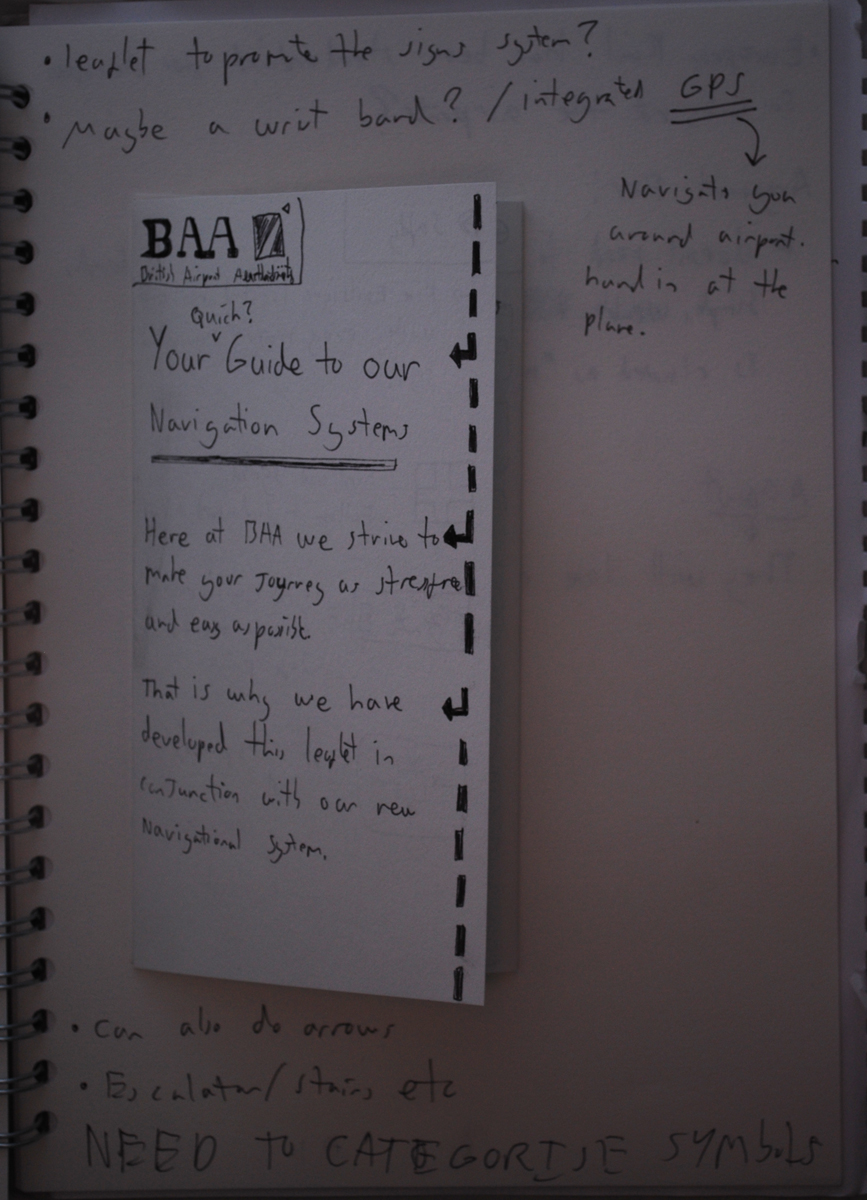 • leaflet to promote the signs system?
• Maybe a wrist band? / integrated GPS
Navigats you
around airport.
hand in at the
plane.
BAA
British Airport
Quick?
Your Guide to our
Navigation Systems
Here at BAA we strive to
make your Journey as stressfree
and easy as possible.
That is why we have
developed this leaflet in
conjunction with our new
Navigational system.
• Can also do arrows
• Escalator/stairs etc
NEED TO CATEGORISE SYMBOLS